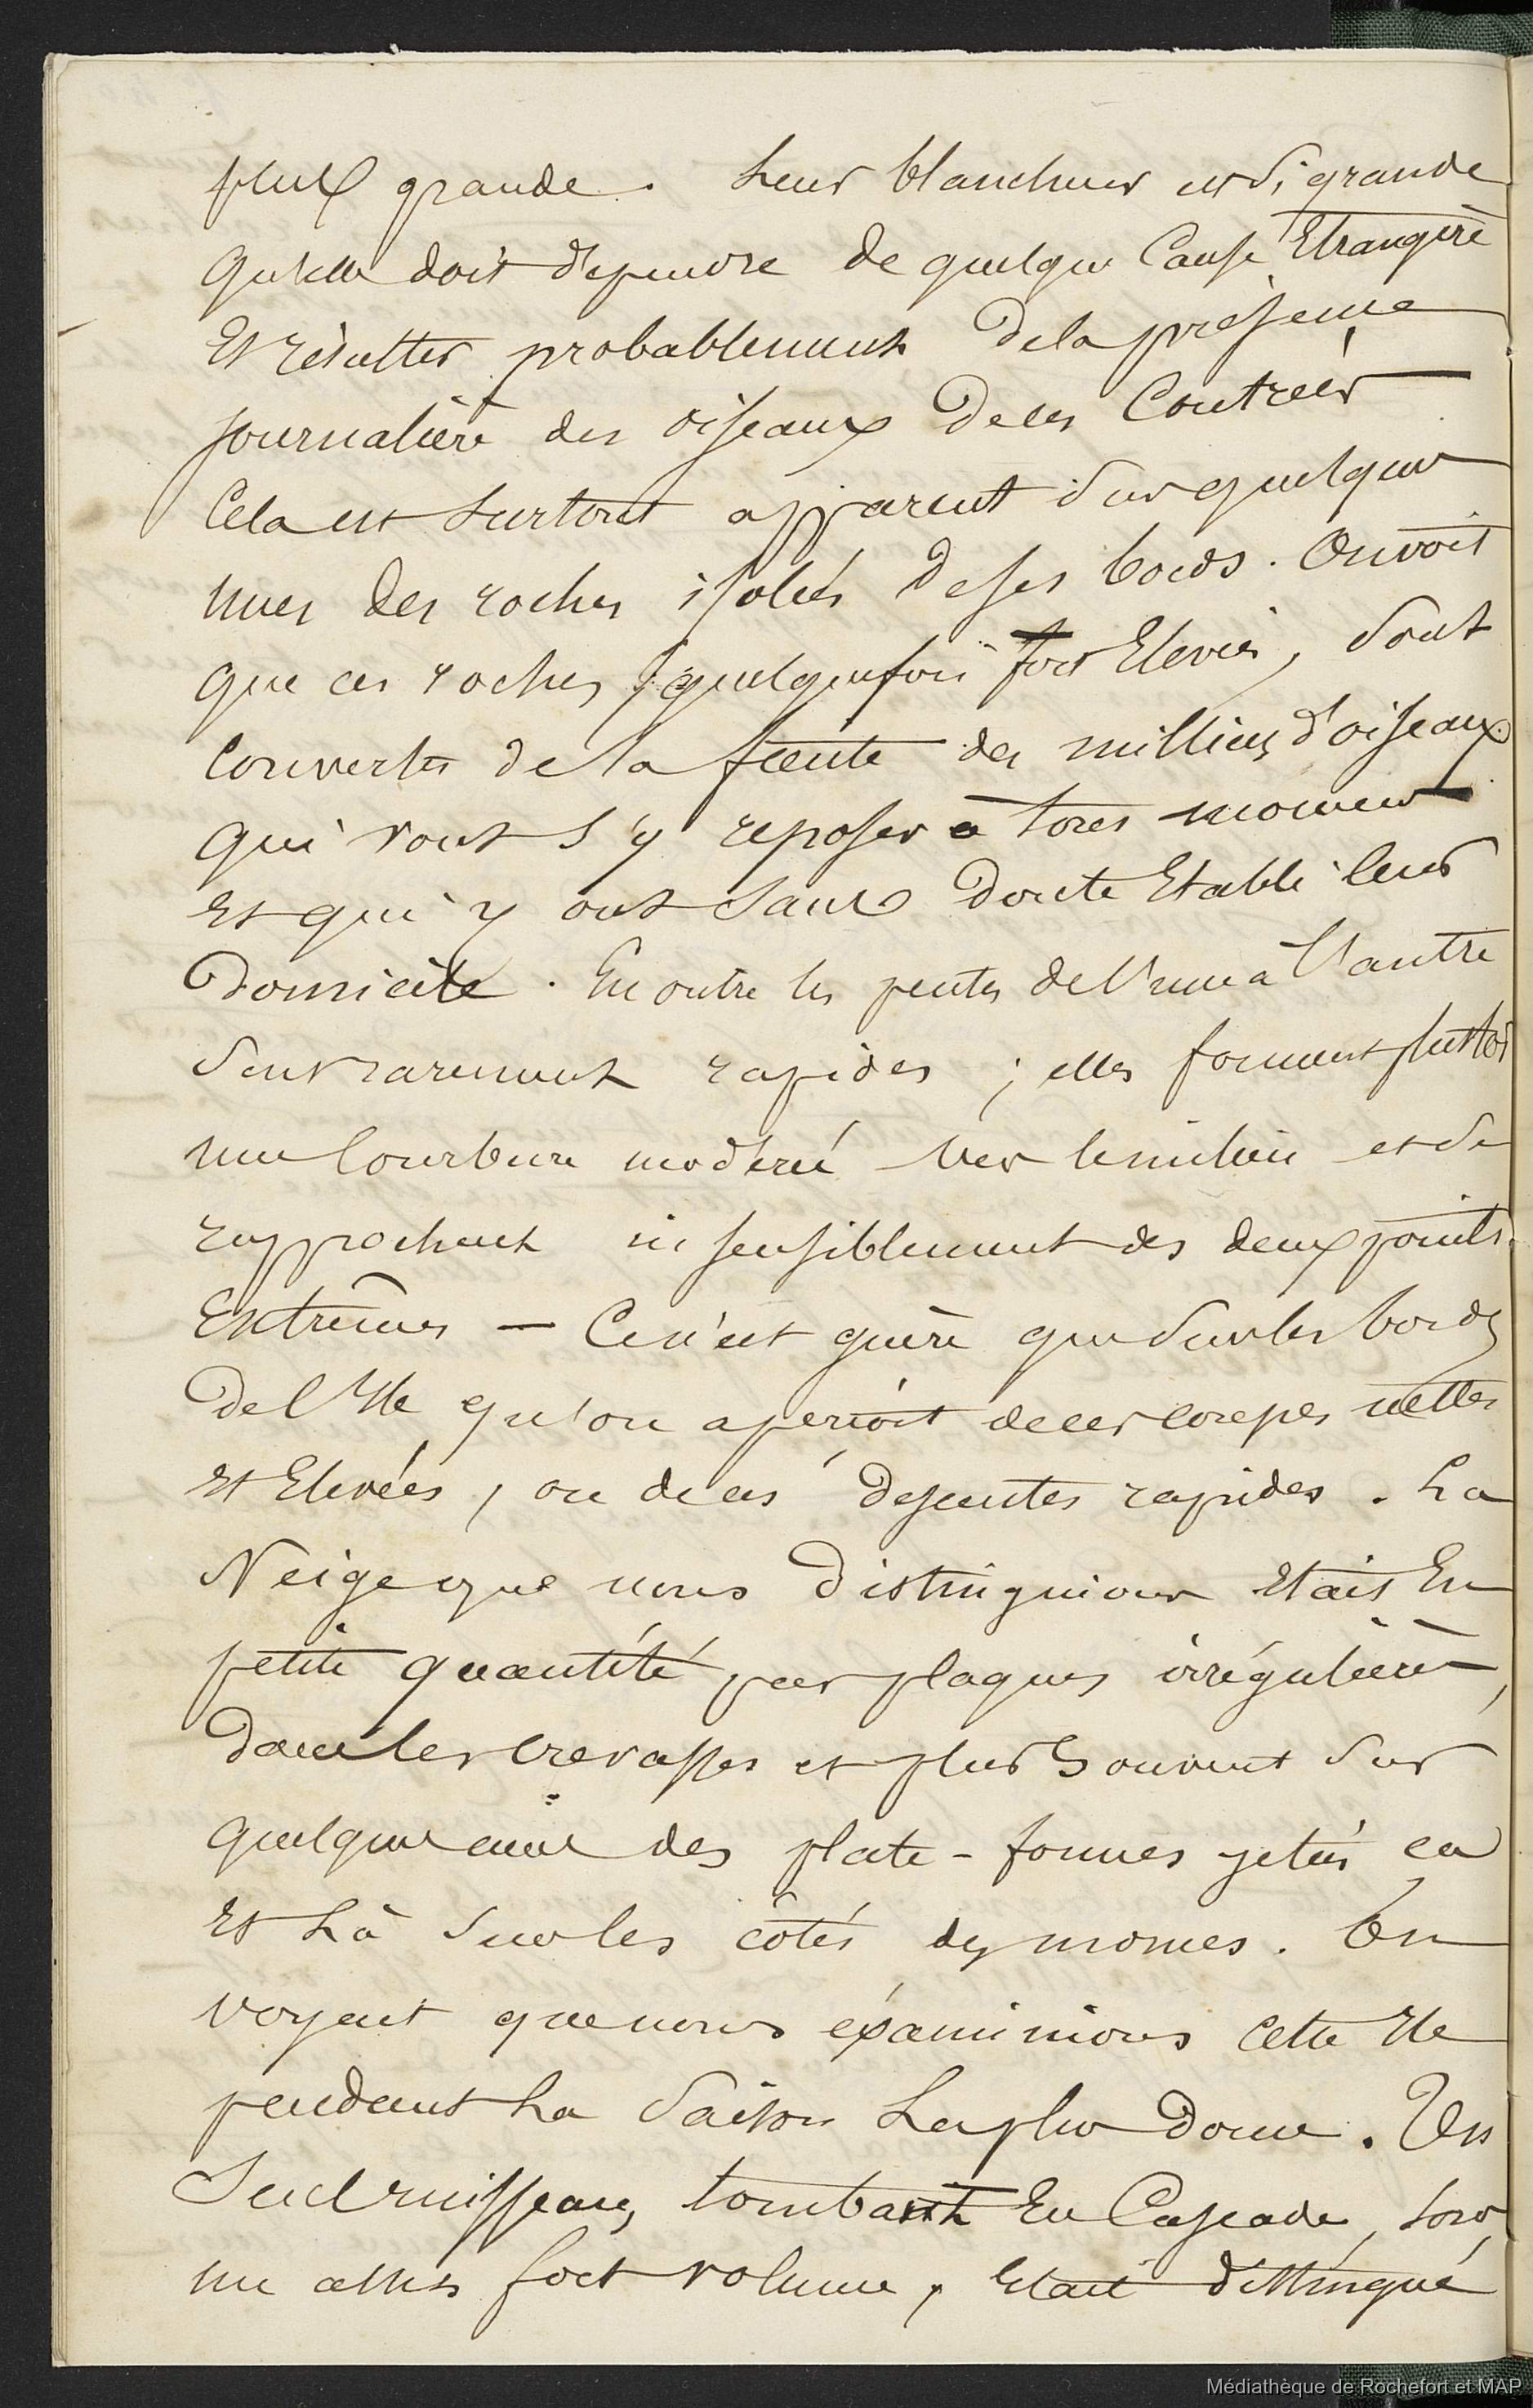 plus grande. Leur blancheur est si grande
qu'elle doit dépendre de quelque Cause Etrangère
Et résulter probablement de la présence
journalière des oiseaux de ces Contrées
Cela est surtout apparent sur quelques
unes des roches isolées de ses bords. On voit
que ces roches, quelquefois fort Elevées, sont
Couvertes de la fiente des milliers d'oiseaux
qui vont s'y reposer à tous moments
Et qui y ont sans doute Etabli leur
Domicile. En outre les pentes de l'une à l'autre
sont rarement rapides ; elles forment plutôt
une Courbure modérée vers le milieu et se
rapprochent insensiblement des deux points
Extrêmes — Ce n'est guère que sur les bords
de l'Ile qu'on aperçoit de ces coupes nettes
Et Elevées, ou de ces descentes rapides. La
Neige que nous distinguions Etait En
petite quantité par plaques irrégulières,
dans les crevasses et plus souvent sur
quelques unes des plate-formes jetées ça
Et Là sur les côtés des mornes. On
voyait que nous éxaminions cette Ile
pendant La Saison La plus douce. Un
Seul ruisseau, tombant En Cascade, sous
un assez fort volume, Etait distingué
Médiathèque de Rochefort et MAP